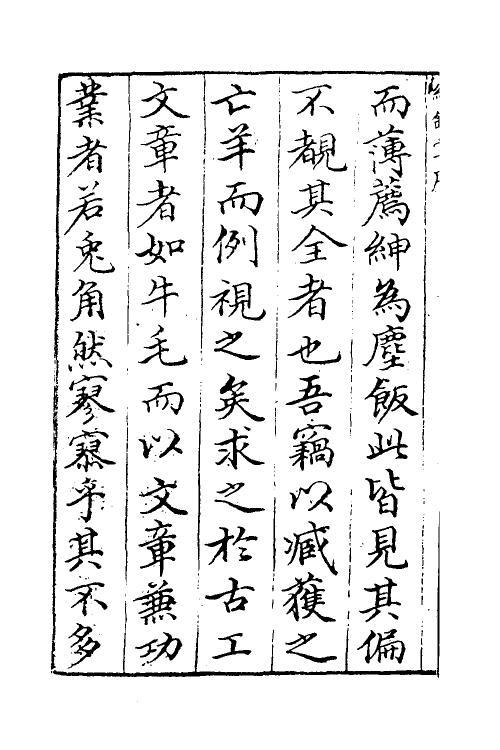 而薄薦紳為塵飯此皆見其偏
不覩其全者也吾竊以臧獲之
亡羊而例視之矣求之於古工
文章者如牛毛而以文章兼功
業者若兎角然寥寥乎其不多